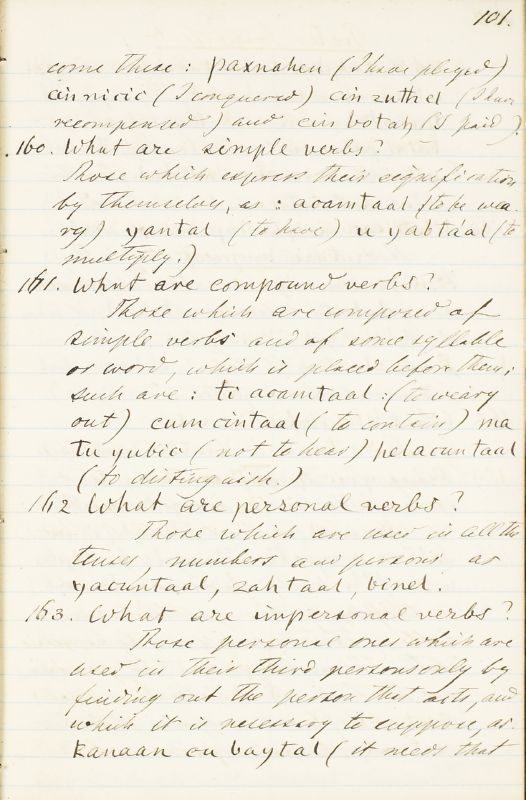 101.
come these: paxnahen (I have played)
cinnicic (I conquered) cin zuthel (I have
recompensed) and cin botah (I paid).
160. What are simple verbs?
Those which express their signification
by themselves, as: acamtaal (to be wea-
ry) yantal (to have) u yabtáal (to
multiply.)
161. What are compound verbs?
Those which are composed of
simple verbs and of some syllable
or word, which is placed before them;
such are: ti acamtaal: (to weary
out) cum cintaal (to contain) ma
tu yubic (not to hear) helacuntaal
(to distinguish.)
162 What are personal verbs?
Those which are used in all the
tenses, numbers and persons as
yacuntaal, zahtaal, binel.
163. What are impersonal verbs?
Those personal ones which are
used in their third persons only by
finding out the person that acts, and
which it is necessary to suppose, as.
Kanaan ca baytal (it needs that